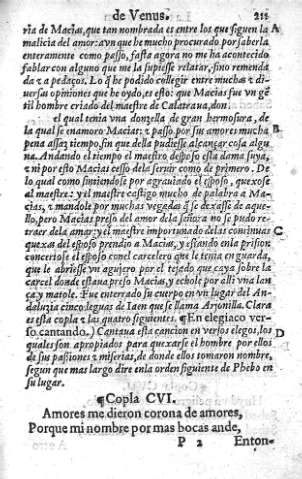 de Venus. 211
ria de Macias, que tan nombrada es entre los que siguen la A
malicia del amor: aun que he mucho procurado por saberla
enteramente como passo, fasta agora no me ha acontecido
fablar con alguno que me la supiesse relatar, sino remenda
da ⁊ a pedaços. Lo q̃ he podido collegir entre muchas ⁊ di-
uersas opiniones que he oydo, es esto: que Macias fue vn gē
til hombre criado del maestre de Calatraua, don
el qual tenia vna donzella de gran hermosura, de
la qual se enamoro Macias: ⁊ passo por sus amores mucha B
pena assaz tiempo, sin que della pudiesse alcançar cosa algu
na. Andando el tiempo el maestro desposo esta dama suya,
⁊ ni por esto Macias cesso dela seruir como de primero. De
lo qual como sintiendose por agrauiado el esposo, quexose
al maestre: y el maestre castigo mucho de palabra a Ma-
cias, ⁊ mandole por muchas vegadas q̃ se dexasse de aque-
llo, pero Macias preso del amor dela señora no se pudo re-
traer dela amar: y el maestre importunado delas continuas C
quexas del esposo prendio a Macias, y estando enla prision
concertose el esposo conel carcelero que le tenia en guarda,
que le abriesse vn agujero por el tejado que caya sobre la
carcel donde estaua preso Macias, y echole por alli vna lan
ça, y matole. Fue enterrado su cuerpo en vn lugar del An
daluzia cinco leguas de Iaen que se llama Arjonilla. Clara
es esta copla ⁊ las quatro siguientes. ¶ En elegiaco ver-
so cantando.) Cantaua esta cancion en versos elegos, los
quales son apropiados para quexarse el hombre por ellos
de sus passiones ⁊ miserias, de donde ellos tomaron nombre,
segun que mas largo dire enla orden siguiente de Phebo en
su lugar.
¶Copla CVI.
Amores me dieron corona de amores,
Porque mi nombre por mas bocas ande,
P 2 Enton-